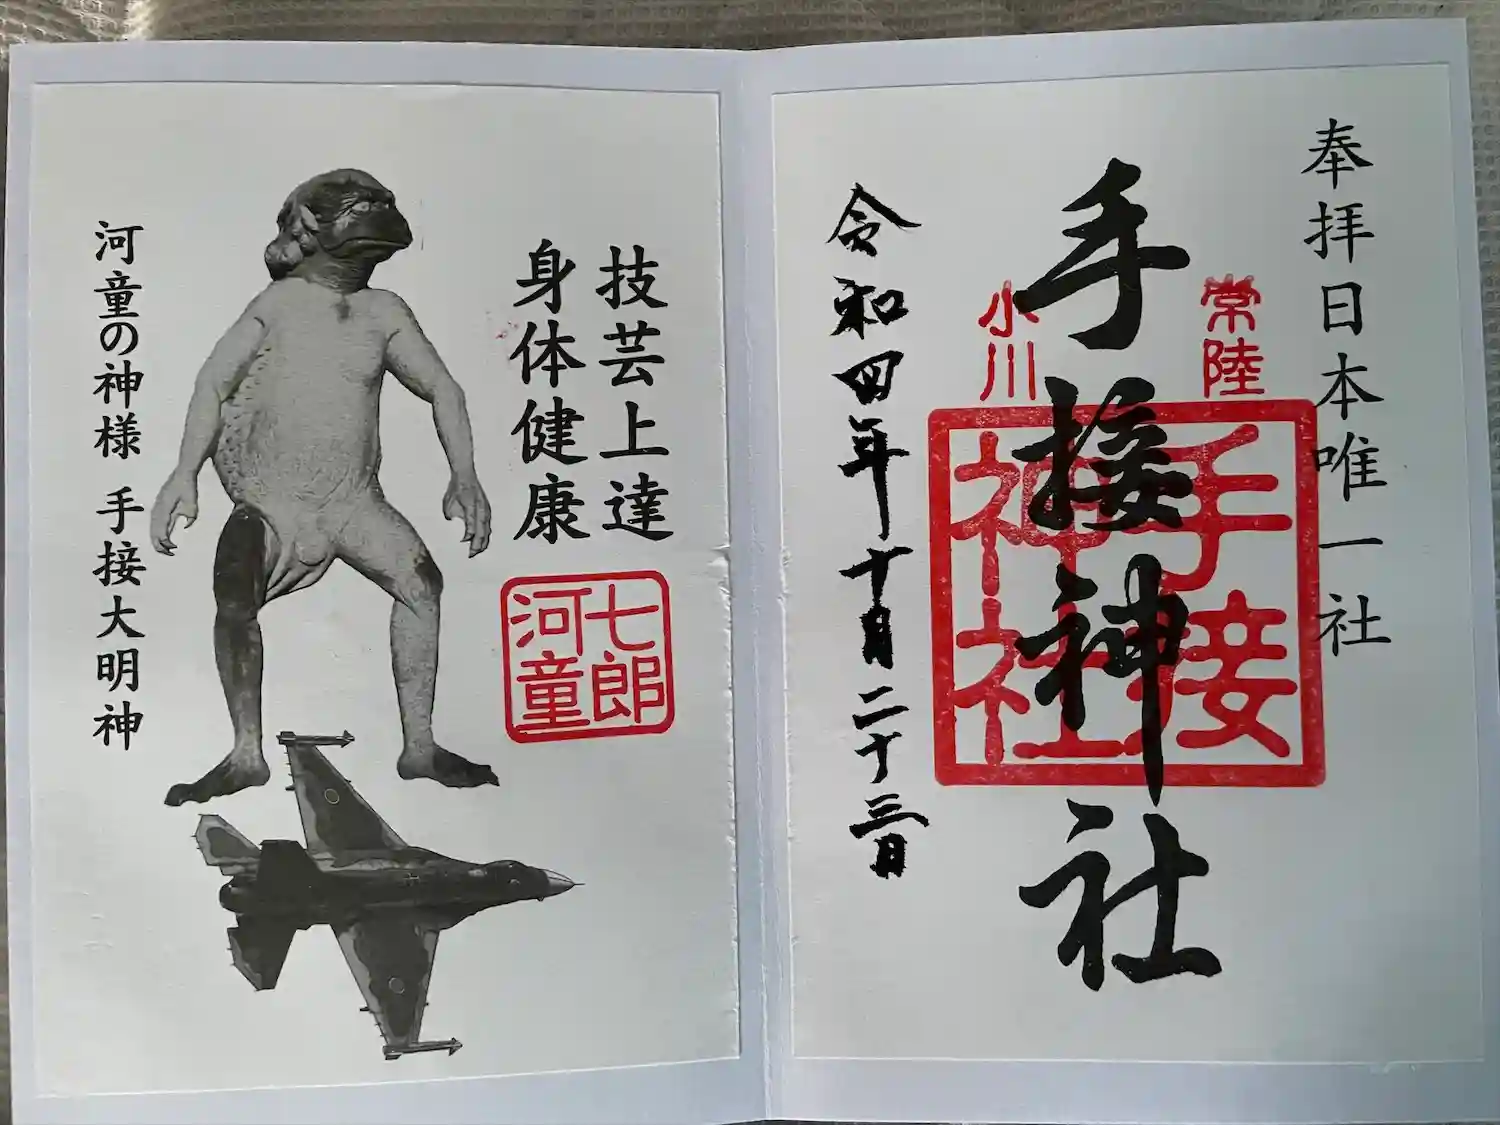 奉拝日本唯一社
常陸
手接神社
小川
手接
神社
令和四年十月二十三日
技芸上達
身体健康
七郎
河童
河童の神様 手接大明神